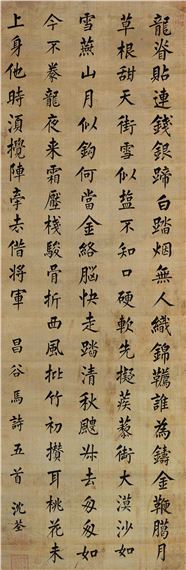 龍脊貼連錢銀蹄白踏烟無人織錦韂誰為鑄金鞭臈月
草根甜天街雪似塩不知口硬軟先擬蒺藜銜大漠沙如
雪燕山月似鈎何當金絡腦快走踏清秋飂叔去匆匆如
今不豢龍夜來霜壓棧駿骨折西風批竹初攢耳桃花未
上身他時須攪陣牽去借將軍 昌谷馬詩五首 沈荃